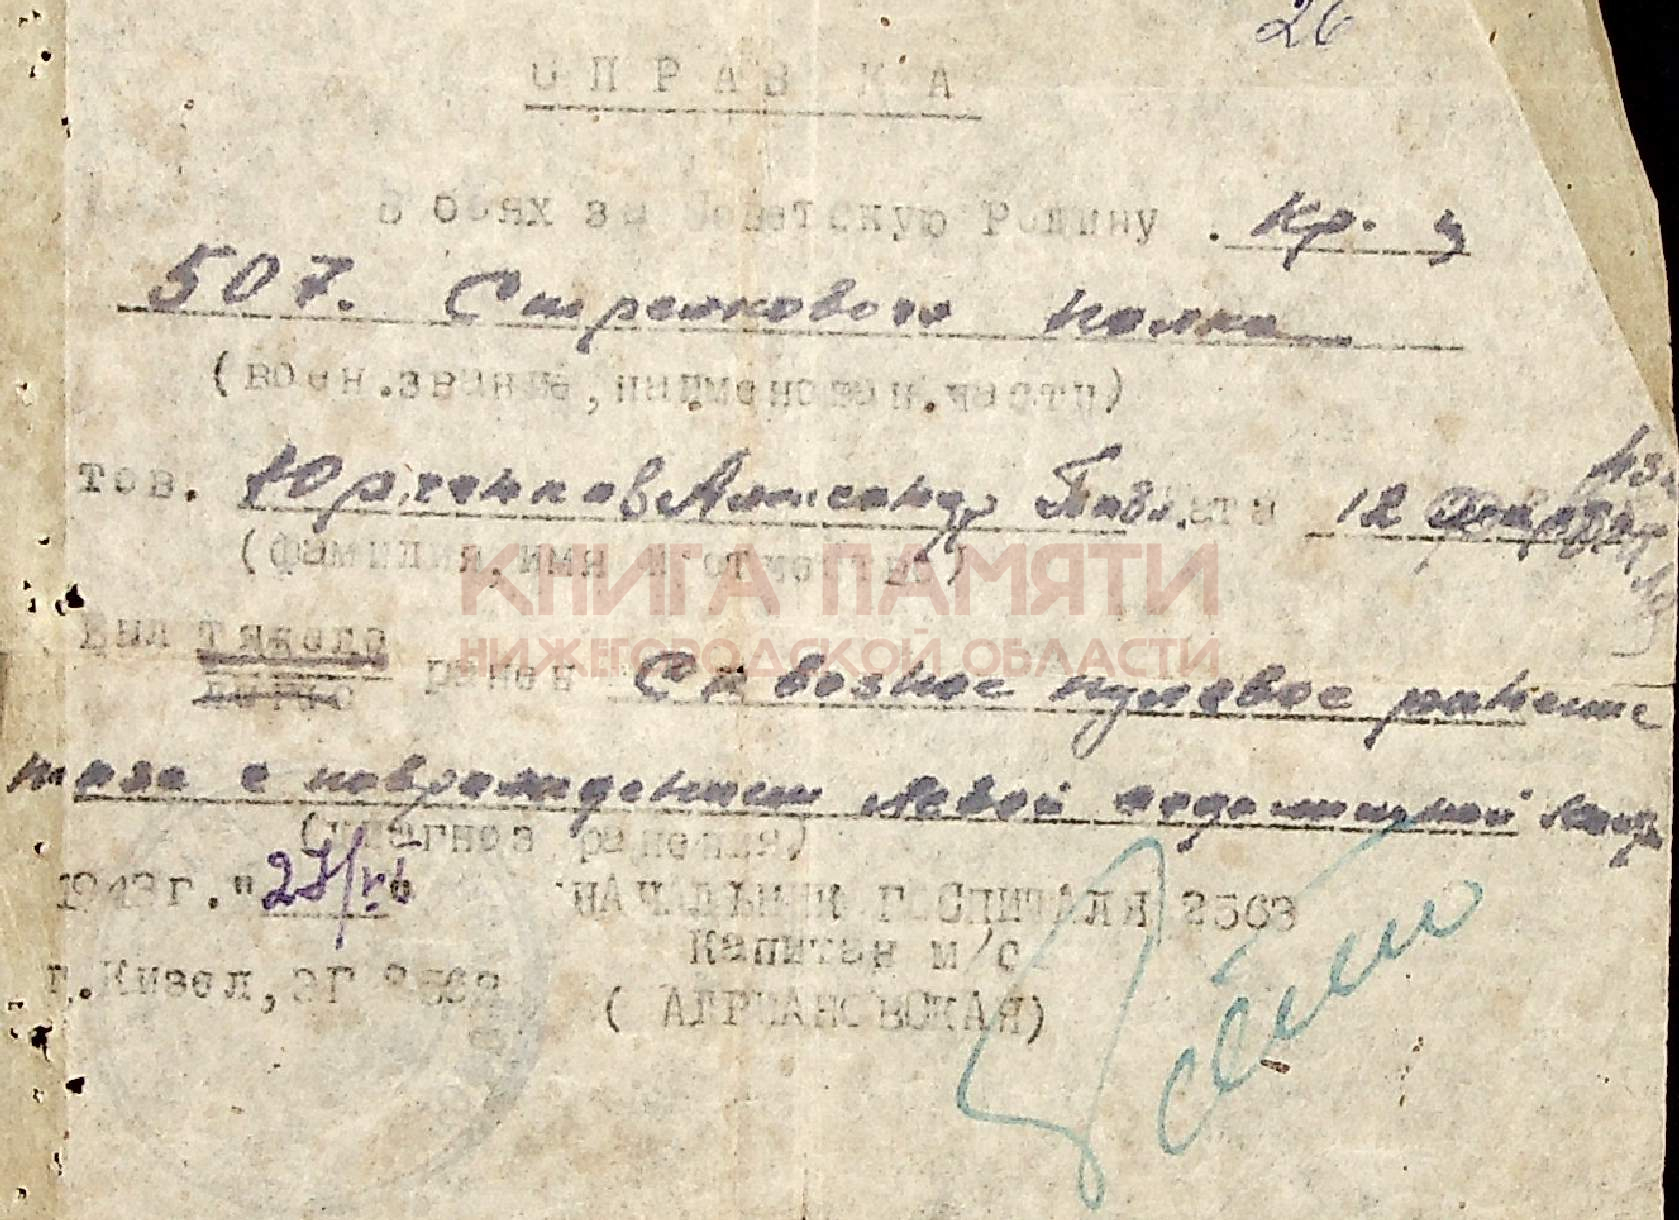 26
СПРАВКА
В боях за Советскую Родину. кр-ц
507. Стрелкового полка
(воен.звание, наименован.части)
тов. Юрченков Александр Павл. дата 12 февраля
(фамилия, имя и отчество)
КНИГА ПАМЯТИ
НИЖЕГОРОДСКОЙ ОБЛАСТИ
Был тяжело ранен Сквозное пулевое ранение
легко
таза с повреждением левой подвздошной
(диагноз ранения)
1943г. "27/VI"
НАЧАЛЬНИК ГОСПИТАЛЯ 2563
Капитан м/с
г.Кизел, ЭГ 2563
( АГРИАНОВСКАЯ)